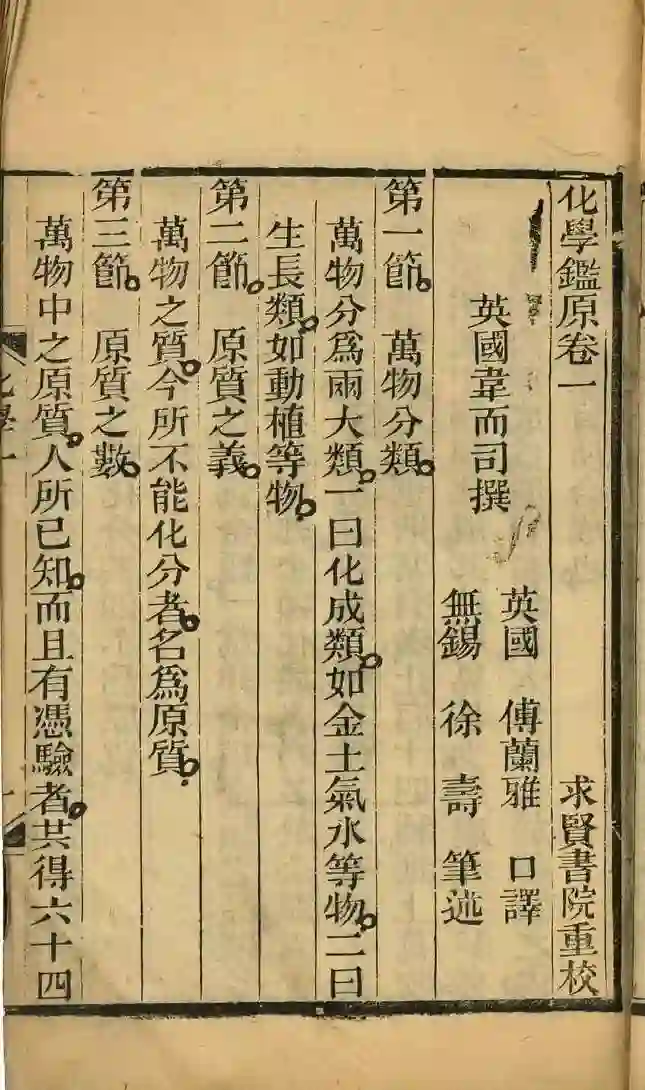 化學鑑原卷一 求賢書院重校
英國韋而司撰
英國 傅蘭雅 口譯
無錫 徐壽 筆述
第一節。 萬物分類。
萬物分爲兩大類。一曰化成類。如金土氣水等物。二曰
生長類。如動植等物。
第二節。 原質之義。
萬物之質。今所不能化分者。名爲原質。
第三節。 原質之數。
萬物中之原質。人所已知。而且有憑驗者。共得六十四
化學一